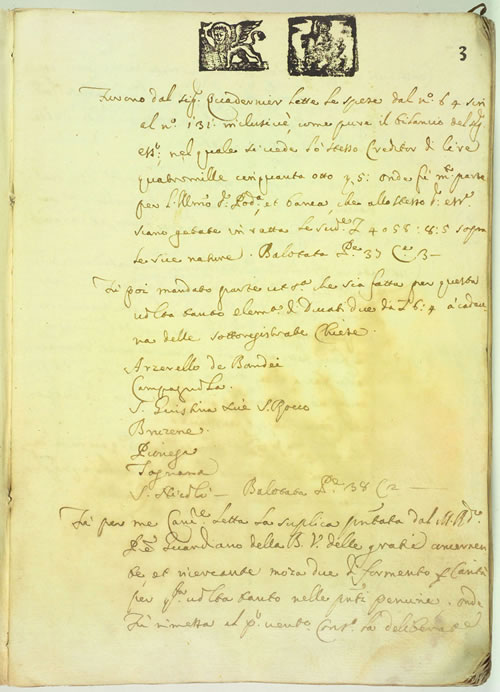 3
Furono dal sig.r Quadernier Letta Le spese dal n.o 64 sin
al n.o 131: inclusive, come pure il bilancio del sig.r
ess.r; nel quale si vede lo stesso Creditor di lire
quatromille cinquanta otto 5: onde fù parte
per l'Illmo Pod.à, et banca, che allo stesso ess.r
siano girate in ratta le sud.e L 4058:8:5 sopra
le sue nature. Balotata P.e 37 C.e 3–
Fù poi mandato parte che sia fatta per questa
volta tanto elemos.a di Ducati due da L 6:4 à cadau-
na delle sottoregistrate Chiese.
Arzerello de Bandei
Campagnola.
S. Giustina S. Rocco
Bruzene.
Piovega
Tognana
S. Nicolò – Balotata P.e 38 C 2 –
Fù per me Canc.e Letta La suplica dal M. R.do
P.e Guardiano della B. V. delle gratie
te, et ricercante moza due di formento Carità
per volta tanto nelle penurie. onde
Fù rimessa al Cons.o la